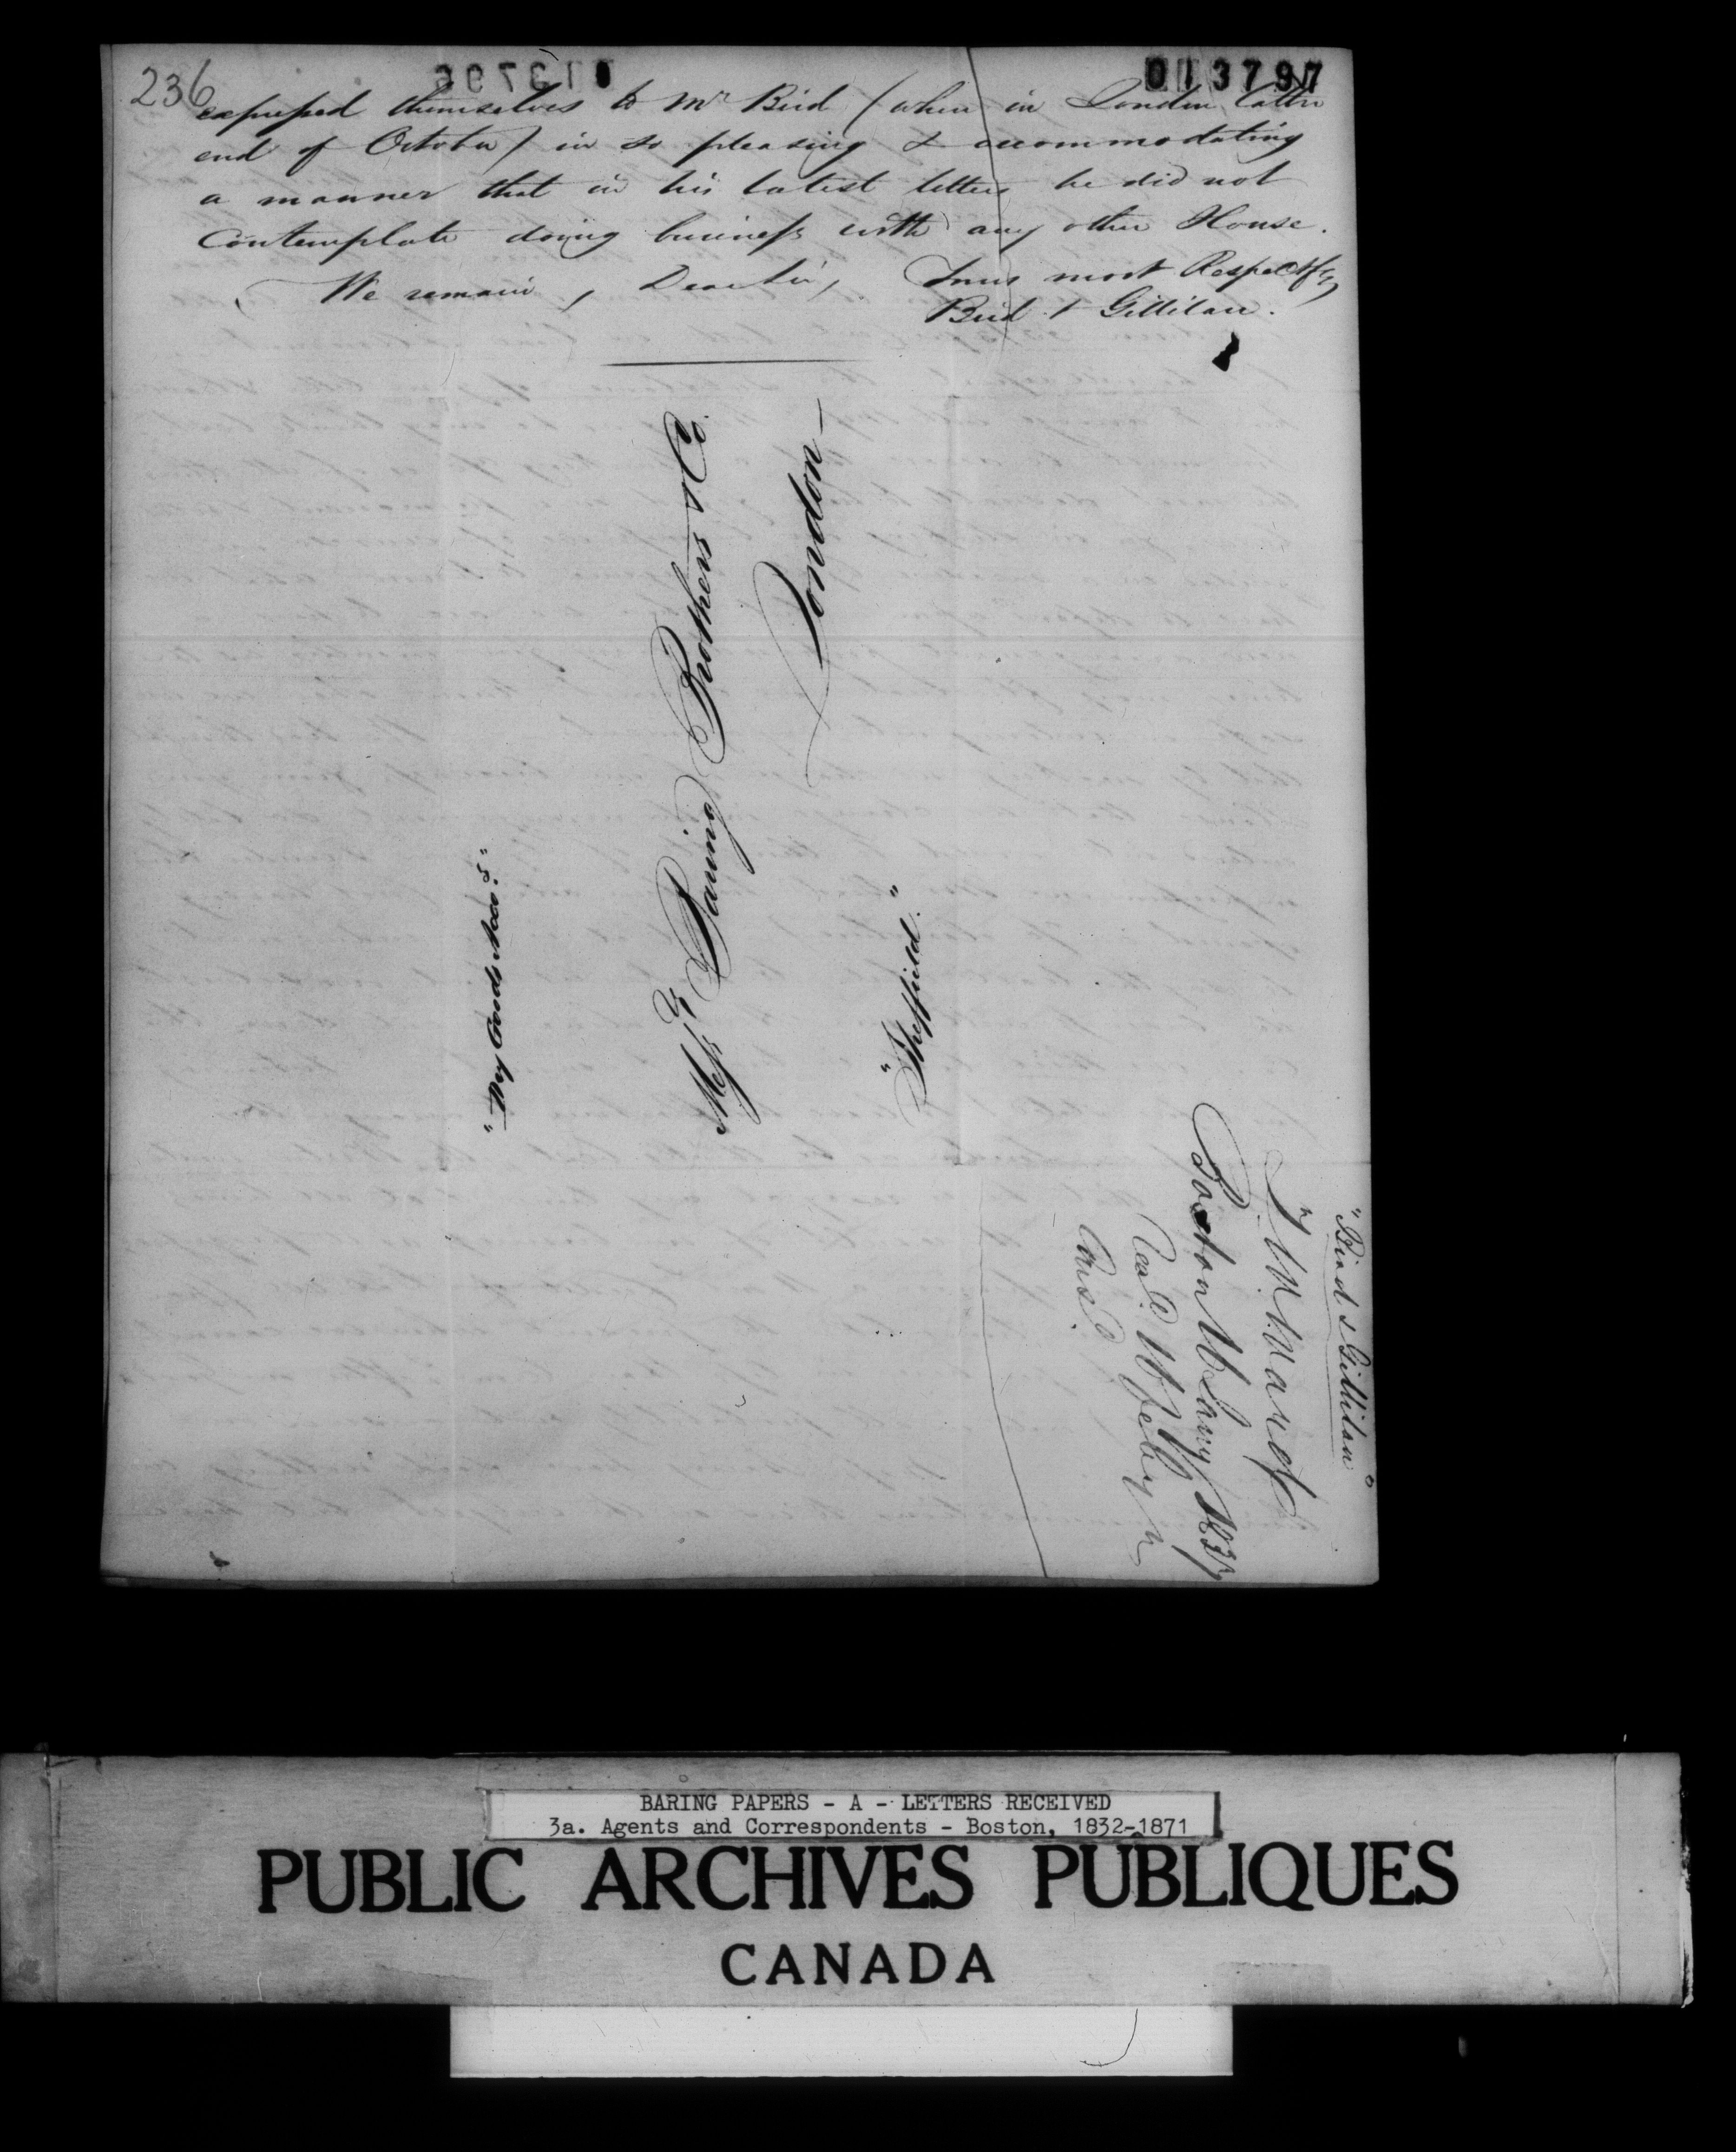 236
013797
expressed themselves to Mr Bird (when in London latter
end of October) in so pleasing & accommodating
a manner that in his latest letters he did not
Contemplate doing business with any other House.
We remain, Dear Sir, Yours most Respectfy
Bird & Gillilan.
"Dry Goods Acco.ts"
Messrs Baring Brothers & Co.
London
"Sheffield."
"Bird & Gillilan"
T. W. Ward
Boston 1837
Recd
Ansd
BARING PAPERS - A - LETTERS RECEIVED
3a. Agents and Correspondents - Boston, 1832-1871
PUBLIC ARCHIVES PUBLIQUES
CANADA